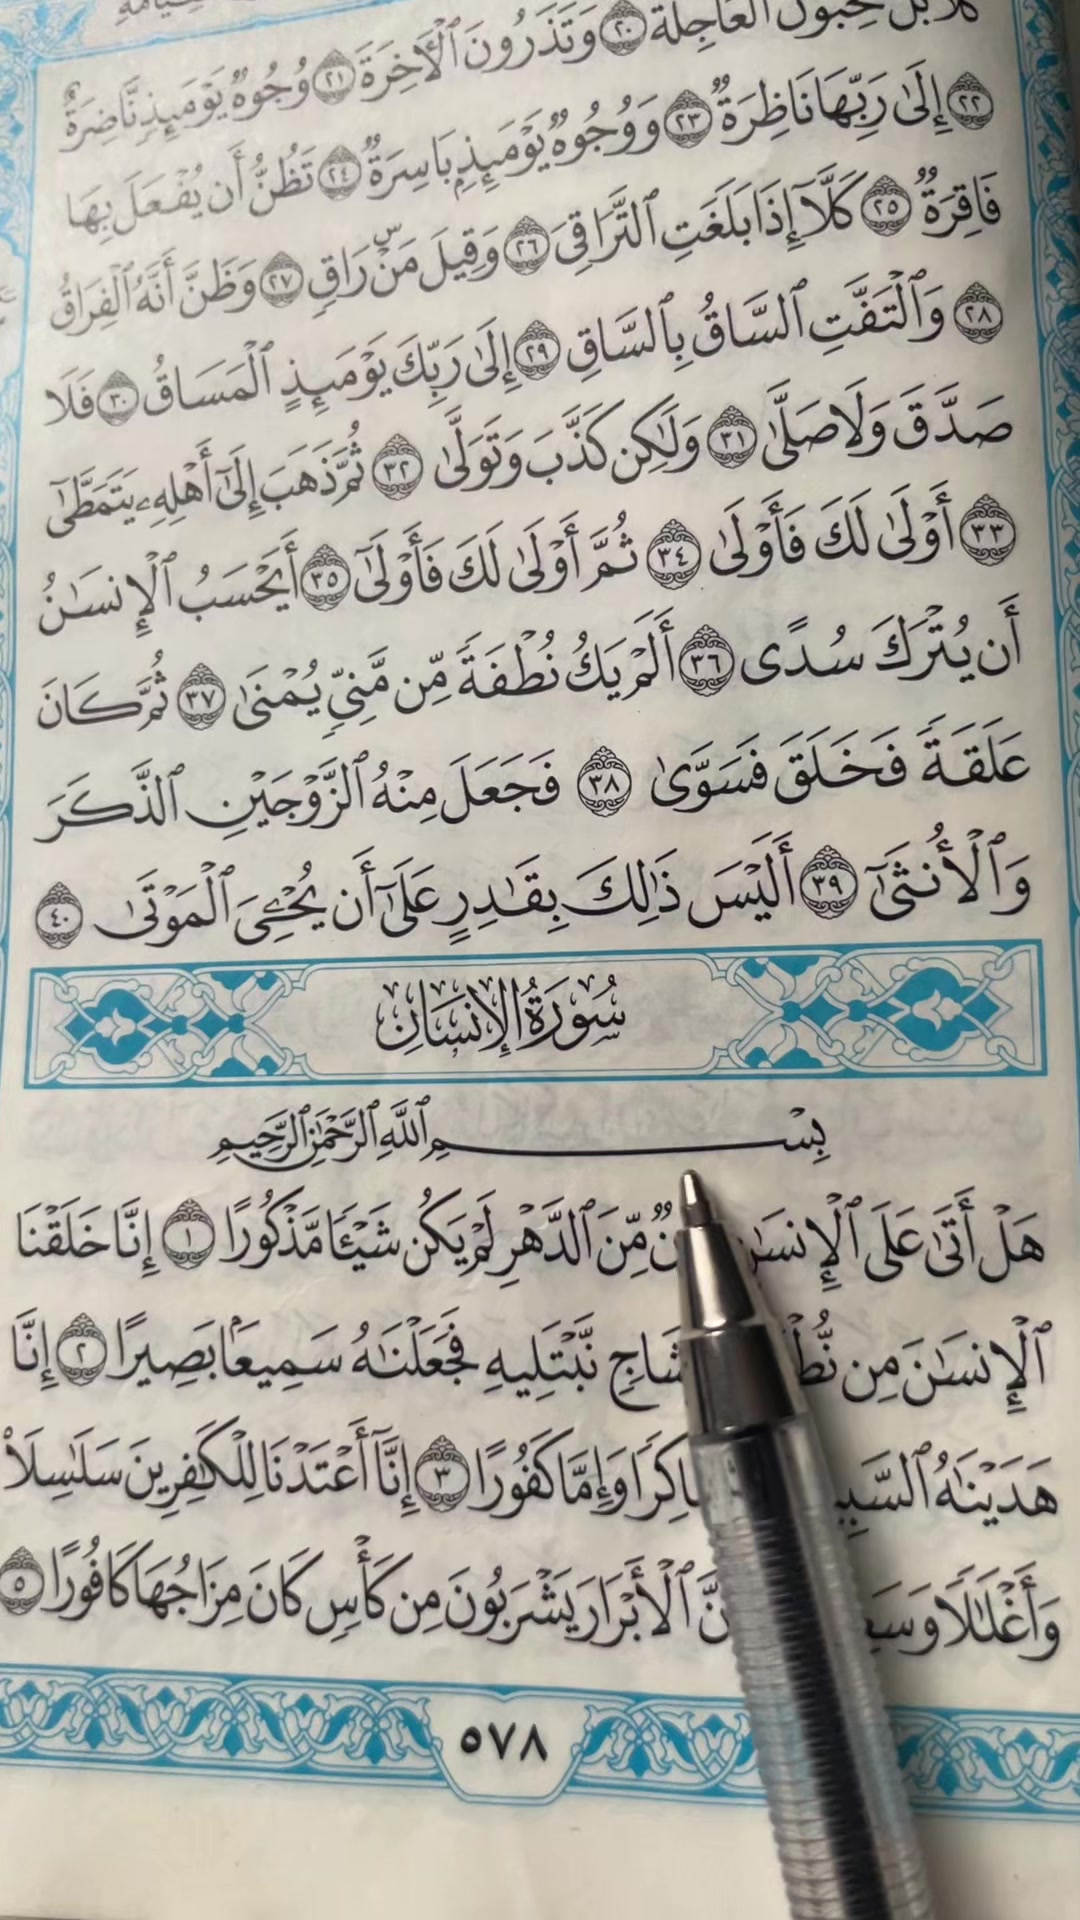 كَلَّا بَلْ تُحِبُّونَ ٱلْعَاجِلَةَ ٢٠ وَتَذَرُونَ ٱلْأٓخِرَةَ ٢١ وُجُوهٌ يَوْمَئِذٍ نَّاضِرَةٌ
٢٢ إِلَىٰ رَبِّهَا نَاظِرَةٌ ٢٣ وَوُجُوهٌ يَوْمَئِذٍۭ بَاسِرَةٌ ٢٤ تَظُنُّ أَن يُفْعَلَ بِهَا
فَاقِرَةٌ ٢٥ كَلَّآ إِذَا بَلَغَتِ ٱلتَّرَاقِيَ ٢٦ وَقِيلَ مَنْۜ رَاقٍ ٢٧ وَظَنَّ أَنَّهُ ٱلْفِرَاقُ
٢٨ وَٱلْتَفَّتِ ٱلسَّاقُ بِٱلسَّاقِ ٢٩ إِلَىٰ رَبِّكَ يَوْمَئِذٍ ٱلْمَسَاقُ ٣٠ فَلَا
صَدَّقَ وَلَا صَلَّىٰ ٣١ وَلَٰكِن كَذَّبَ وَتَوَلَّىٰ ٣٢ ثُمَّ ذَهَبَ إِلَىٰٓ أَهْلِهِۦ يَتَمَطَّىٰٓ
٣٣ أَوْلَىٰ لَكَ فَأَوْلَىٰ ٣٤ ثُمَّ أَوْلَىٰ لَكَ فَأَوْلَىٰٓ ٣٥ أَيَحْسَبُ ٱلْإِنسَٰنُ
أَن يُتْرَكَ سُدًى ٣٦ أَلَمْ يَكُ نُطْفَةً مِّن مَّنِىٍّ يُمْنَىٰ ٣٧ ثُمَّ كَانَ
عَلَقَةً فَخَلَقَ فَسَوَّىٰ ٣٨ فَجَعَلَ مِنْهُ ٱلزَّوْجَيْنِ ٱلذَّكَرَ
وَٱلْأُنثَىٰٓ ٣٩ أَلَيْسَ ذَٰلِكَ بِقَٰدِرٍ عَلَىٰٓ أَن يُحْـِۧىَ ٱلْمَوْتَىٰ ٤٠
سُورَةُ الإِنسَانِ
بِسْمِ ٱللَّهِ ٱلرَّحْمَٰنِ ٱلرَّحِيمِ
هَلْ أَتَىٰ عَلَى ٱلْإِنسَٰنِ مِّنَ ٱلدَّهْرِ لَمْ يَكُن شَيْـًٔا مَّذْكُورًا ١ إِنَّا خَلَقْنَا
ٱلْإِنسَٰنَ مِن نَّبْتَلِيهِ فَجَعَلْنَٰهُ سَمِيعًۢا بَصِيرًا ٢ إِنَّا
هَدَيْنَٰهُ وَإِمَّا كَفُورًا ٣ إِنَّآ أَعْتَدْنَا لِلْكَٰفِرِينَ سَلَٰسِلَا۟
وَأَغْلَٰلًا ٱلْأَبْرَارَ يَشْرَبُونَ مِن كَأْسٍ كَانَ مِزَاجُهَا كَافُورًا ٥
٥٧٨